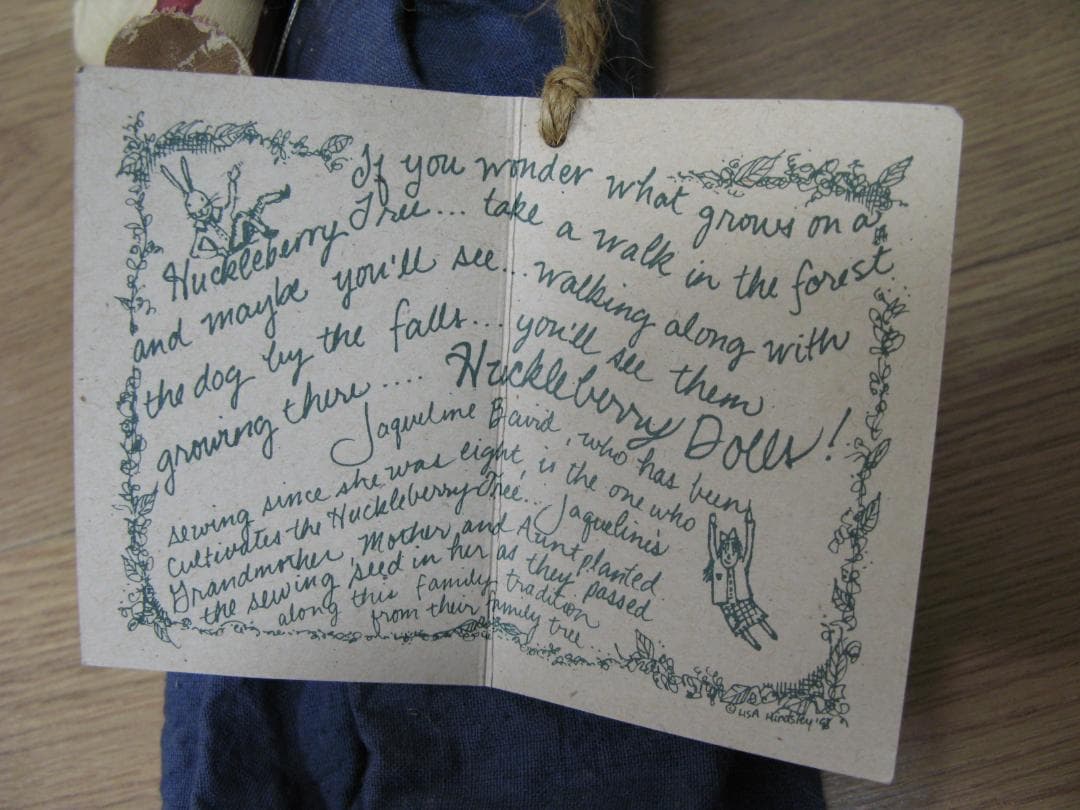 If you wonder what grows on a
Huckleberry Tree... take a walk in the forest
and maybe you'll see... walking along with
the dog by the falls... you'll see them
growing there.... Huckleberry Dolls!
Jaqueline Bavid, who has been
sewing since she was eight, is the one who
cultivates the Huckleberry Tree... Jaqueline's
Grandmother, Mother and Aunt planted
the sewing seed in her as they passed
along this family tradition
from their family tree...
© Lisa Hindsley